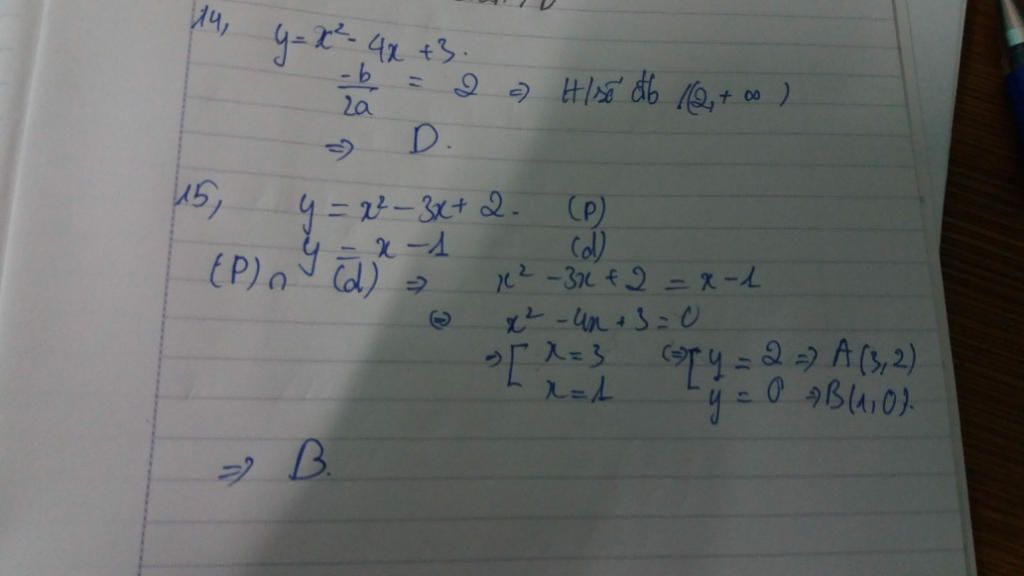 14,
y = x² - 4x + 3.
-b/2a = 2 ⇒ H/số đb (2, + ∞ )
⇒ D.
15,
y = x² - 3x + 2. (P)
y = x - 1 (d)
(P) ∩ (d) ⇒ x² - 3x + 2 = x - 1
⇔ x² - 4x + 3 = 0
⇒ [ x = 3 ⇔ [ y = 2 ⇒ A (3, 2)
x = 1 y = 0 ⇒ B (1, 0).
⇒ B.